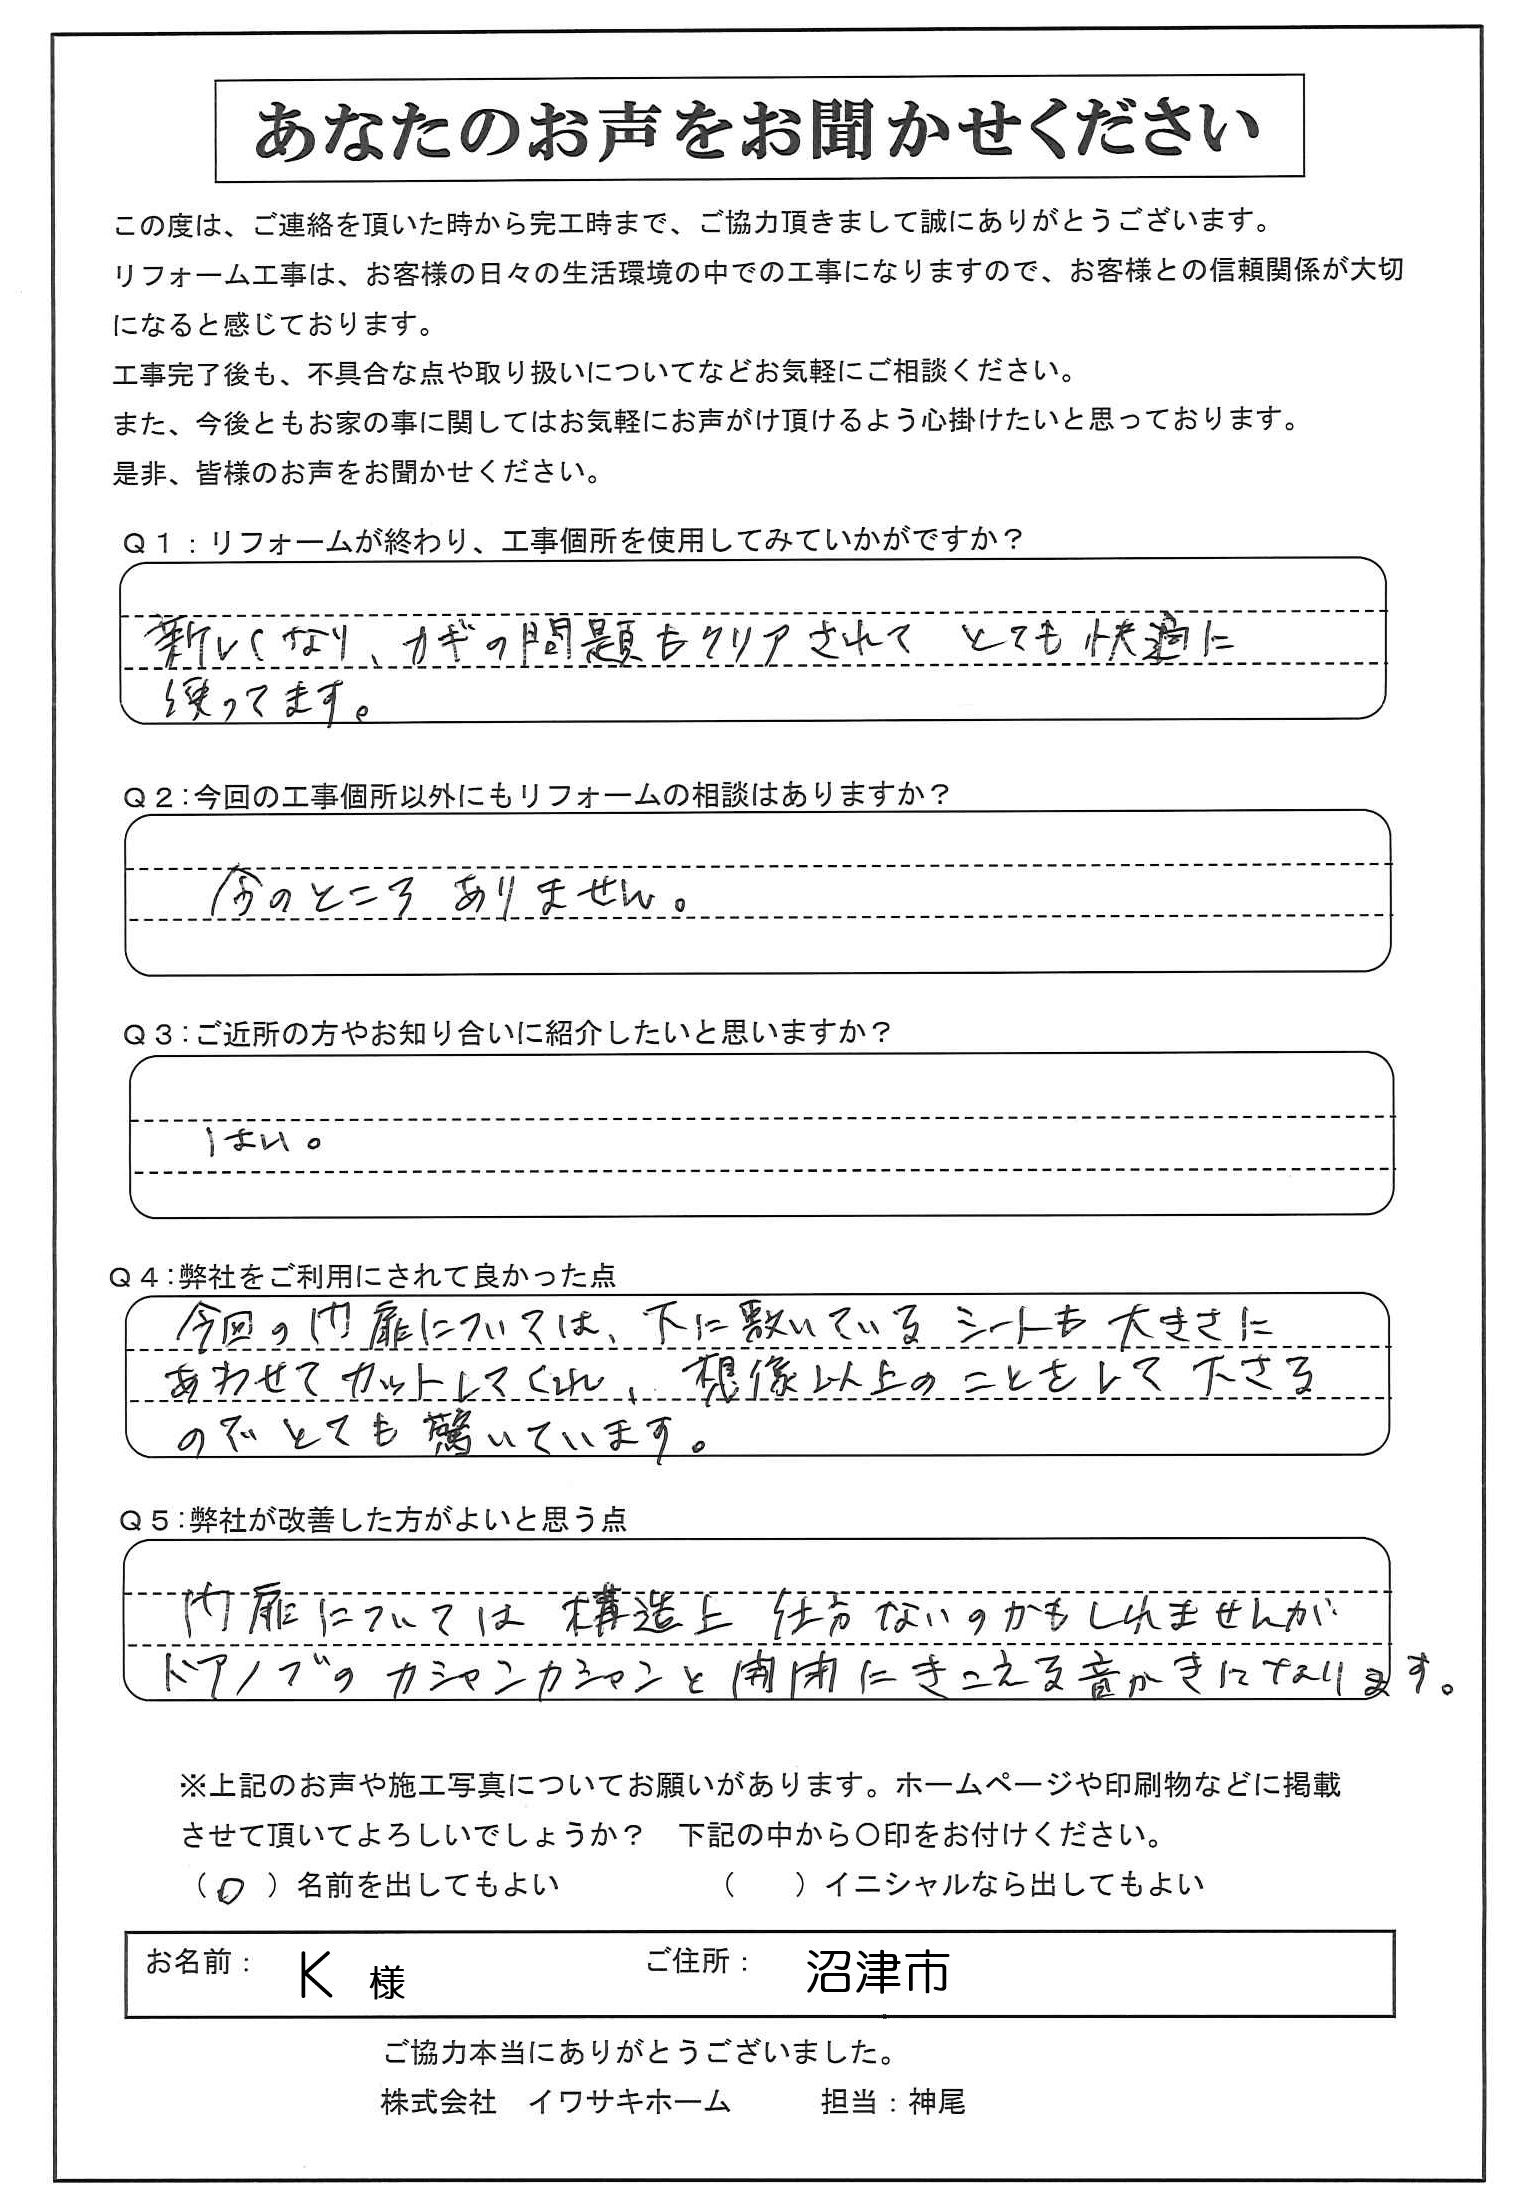 あなたのお声をお聞かせください
この度は、ご連絡を頂いた時から完工時まで、ご協力頂きまして誠にありがとうございます。
リフォーム工事は、お客様の日々の生活環境の中での工事になりますので、お客様との信頼関係が大切
になると感じております。
工事完了後も、不具合な点や取り扱いについてなどお気軽にご相談ください。
また、今後ともお家の事に関してはお気軽にお声がけ頂けるよう心掛けたいと思っております。
是非、皆様のお声をお聞かせください。
Ｑ１：リフォームが終わり、工事個所を使用してみていかがですか？
新しくなり、カギの問題もクリアされて とても快適に
使ってます。
Ｑ２：今回の工事個所以外にもリフォームの相談はありますか？
今のところ ありません。
Ｑ３：ご近所の方やお知り合いに紹介したいと思いますか？
はい。
Ｑ４：弊社をご利用にされて良かった点
今回の門扉については、下に敷いている シートも 大きさに
あわせて カットしてくれ、想像以上の ことをして 下さる
ので とても 驚いています。
Ｑ５：弊社が改善した方がよいと思う点
門扉については 構造上 仕方ないのかもしれませんが
ドアノブの カシャンカシャンと 開閉にきこえる音がきになります。
※上記のお声や施工写真についてお願いがあります。ホームページや印刷物などに掲載
させて頂いてよろしいでしょうか？　下記の中から〇印をお付けください。
（〇）名前を出してもよい　（　　）イニシャルなら出してもよい
お名前： K 様　ご住所： 沼津市
ご協力本当にありがとうございました。
株式会社　イワサキホーム　担当：神尾